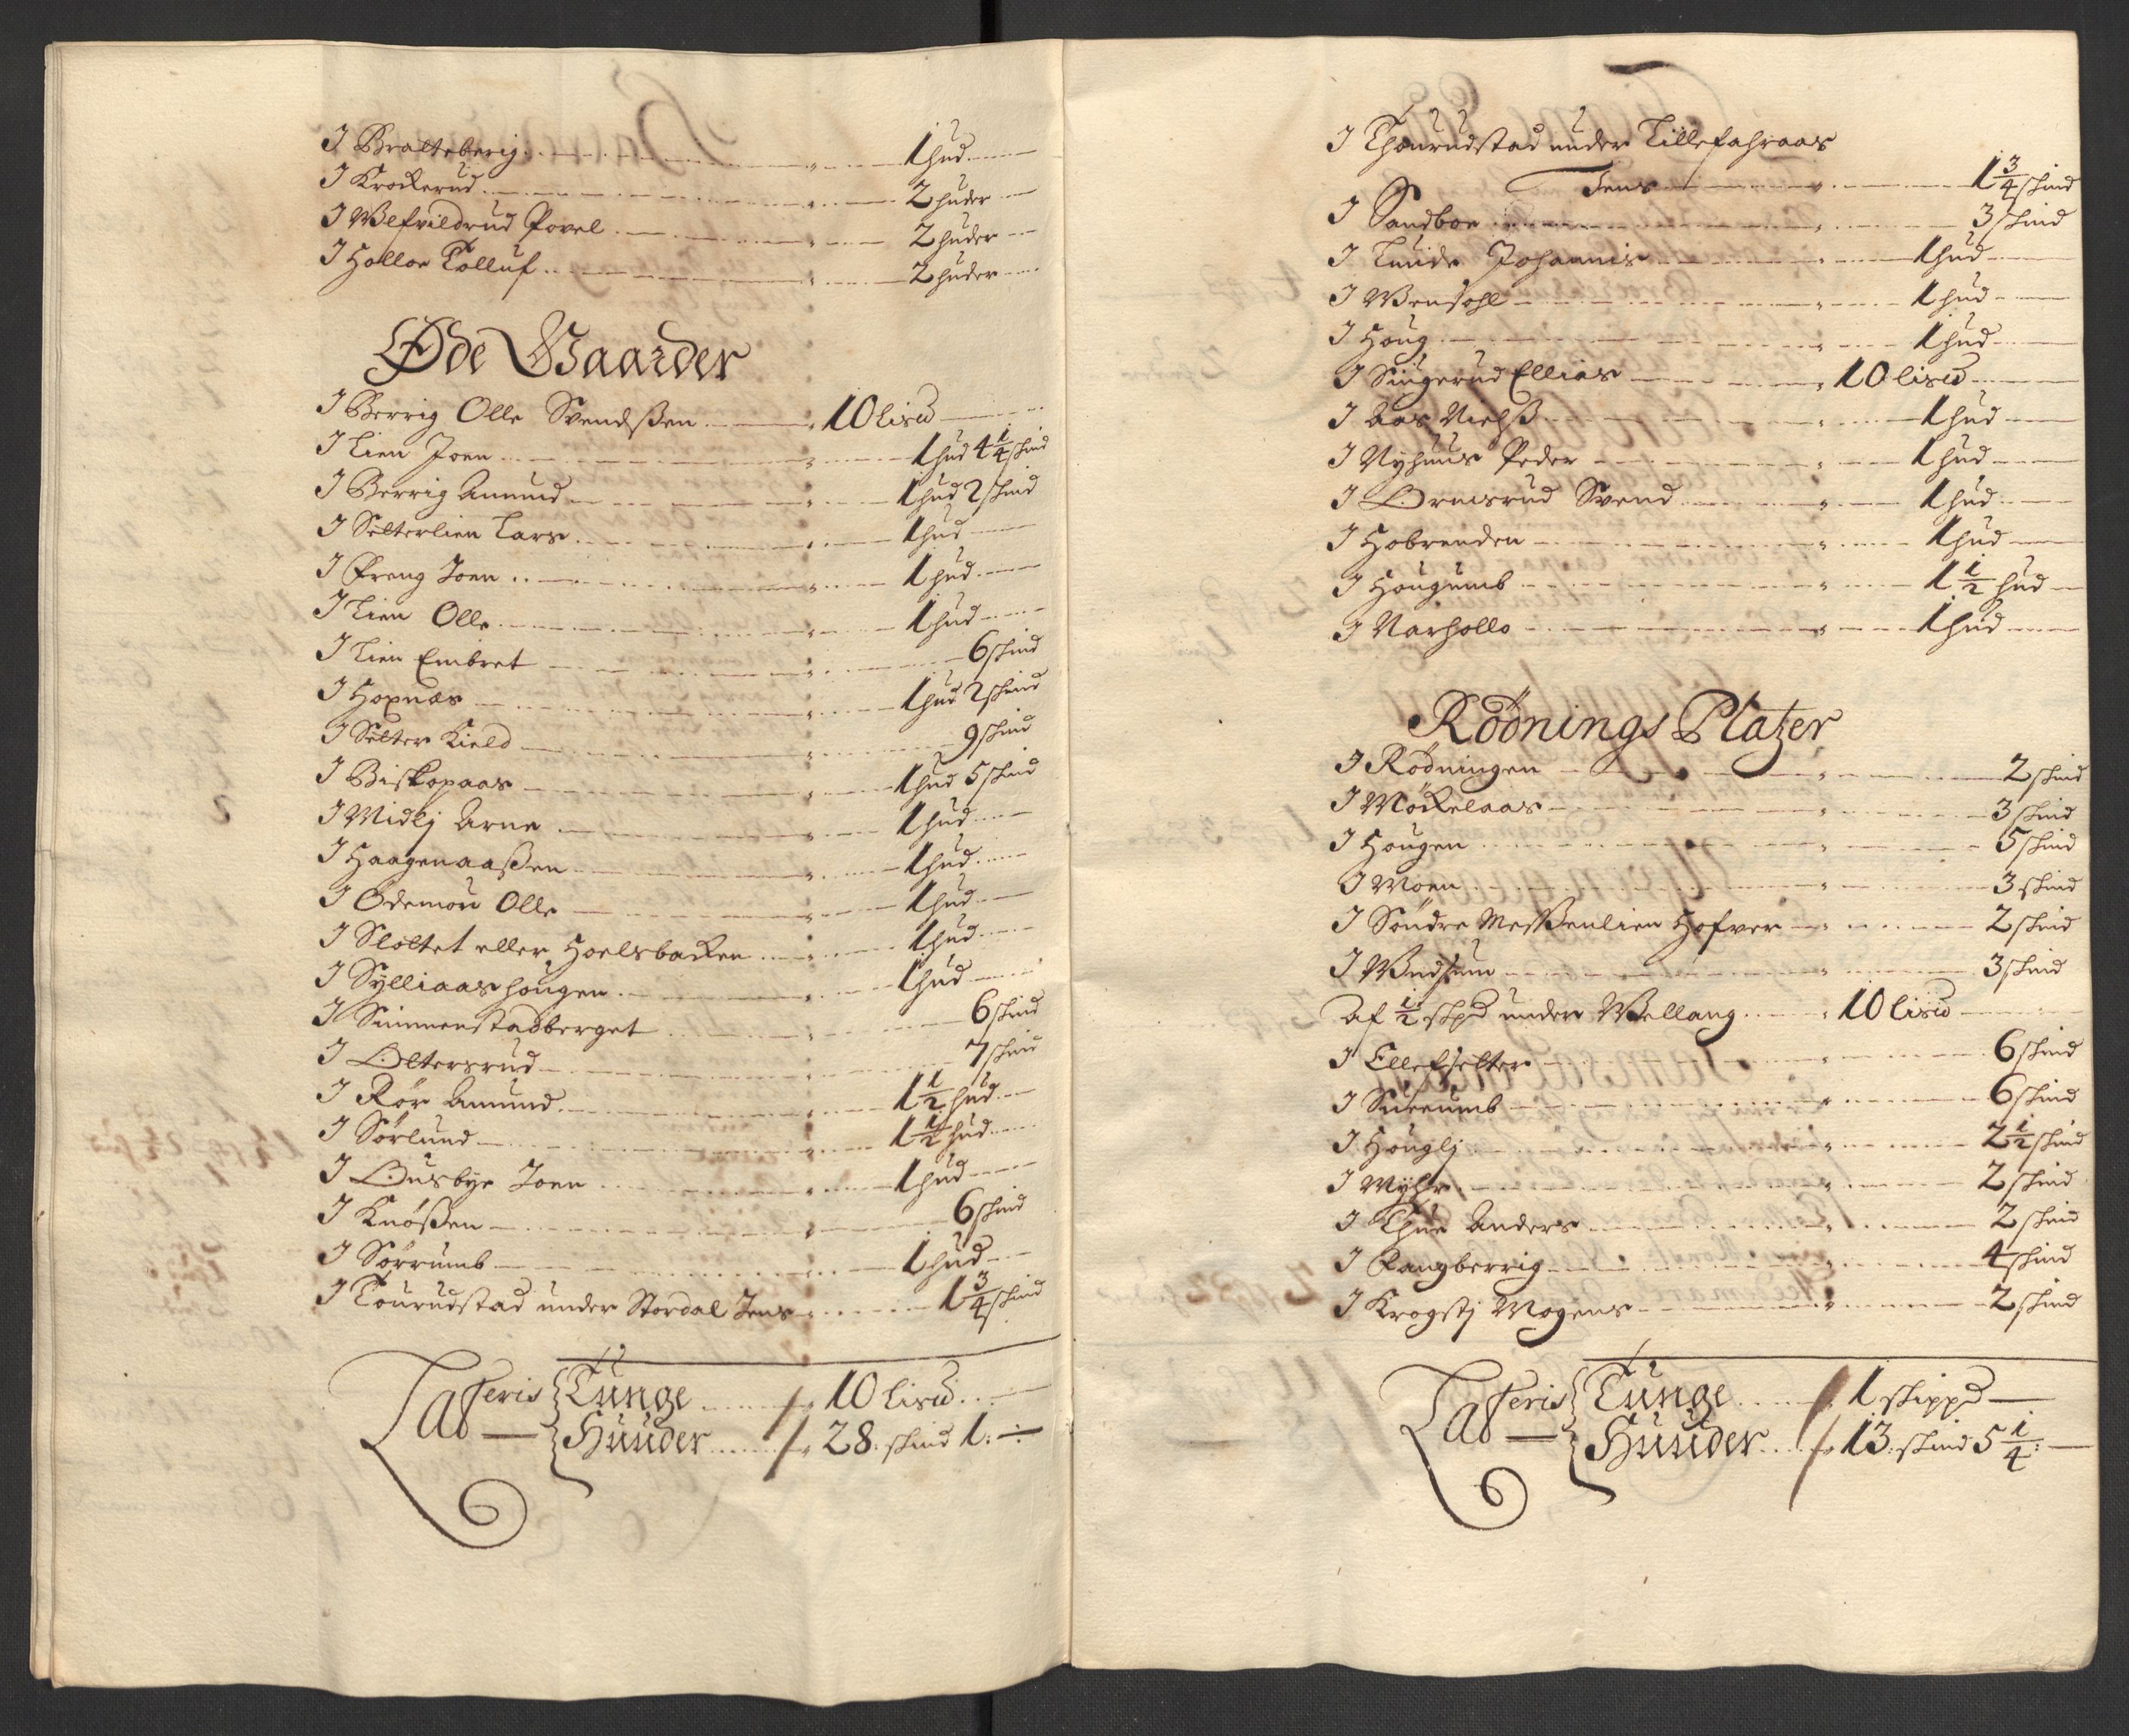 I Bratteberig 1 hud
I Krockerud 2 huder
I Wlfvildrud Povel 2 huder
I Holloe Tolluf 2 huder
Øde Gaarder
I Berrig Olle Svendßen 10 lis℔
I Lien Joen 1 hud 4 1/4 skind
I Berrig Amund 1 hud 2 skind
I Selterlien Lars 1 hud
I Preng Joen 1 hud
I Lien Olle 1 hud
I Lien Embret 6 skind
I Hoxnæs 1 hud 2 skind
I Selter Kield 9 skind
I Biskopaas 1 hud 5 skind
I Midlj Arne 1 hud
I Haagenaaßen 1 hud
I Ødemou Olle 1 hud
I Slottet eller Hoelsbacken 1 hud
I Sylliaashougen 1 hud
I Simmenstadberget 6 skind
I Oltersrud 7 skind
I Rør Amund 1 1/2 hud
I Sørlund 1 1/2 hud
I Ousbye Joen 1 hud
I Knøßen 6 skind
I Sørrumb 1 hud
I Tourudstad under Stordal Jens 1 3/4 skind
Lateris Tunge 10 lis℔
Huuder 28. skind 1. ÷
I Thourudstad under Lillefahraas
Jens 1 3/4 skind
I Sandboe 3 skind
I Lunde Johannis 1 hud
I Wensohl 1 hud
I Houg 1 hud
I Singerud Ellias 10 lis℔
I Aas Nielß 1 hud
I Nyhuus Peder 1 hud
I Ormsrud Svend 1 hud
I Hobrenden 1 hud
I Hougumb 1 1/2 hud
I Narhollo 1 hud
Rødnings Platzer
I Rødningen 2 skind
I Møckelaas 3 skind
I Hougen 5 skind
I Moen 3 skind
I Søndre Meßenlien Hofver 2 skind
I Wndsum 3 skind
Af 1/2 skp℔ under Wellang 10 lis℔
I Ellefselter 6 skind
I Surrumb 6 skind
I Houglj 2 1/2 skind
I Myhr 2 skind
I Thue Anders 2 skind
I Rangberrig 4 skind
I Krogstj Mogens 2 skind
Lateris Tunge 1 skipp℔
Huuder 13. skind 5 1/4